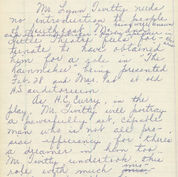 Mr. Lynn Twitty needs
no introduction to people
ternate to have obtained
him for a role in "The
Rainmaker" being presented
Feb. 28 and Mar. 1st at
H.S. auditorium
As H.C. Curry, in the
play, Mr. Twitty will portray
a powerfully set, capable
man who is not all
efficiency for there's
a dreamer in him too.
Mr. Twitty undertook this
role with much